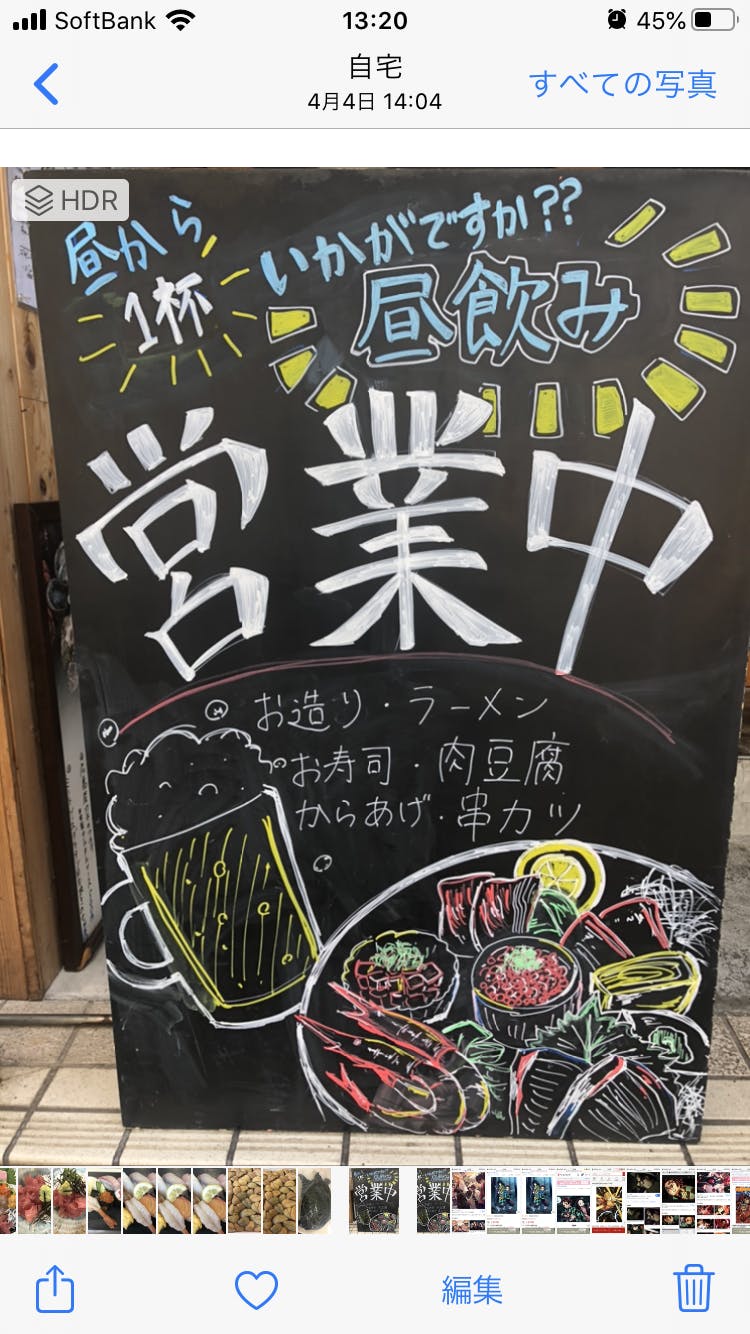 SoftBank 13:20 45%
自宅
4月4日 14:04
すべての写真
HDR
昼から
1杯
いかがですか??
昼飲み
営業中
お造り・ラーメン
お寿司・肉豆腐
からあげ・串カツ
編集